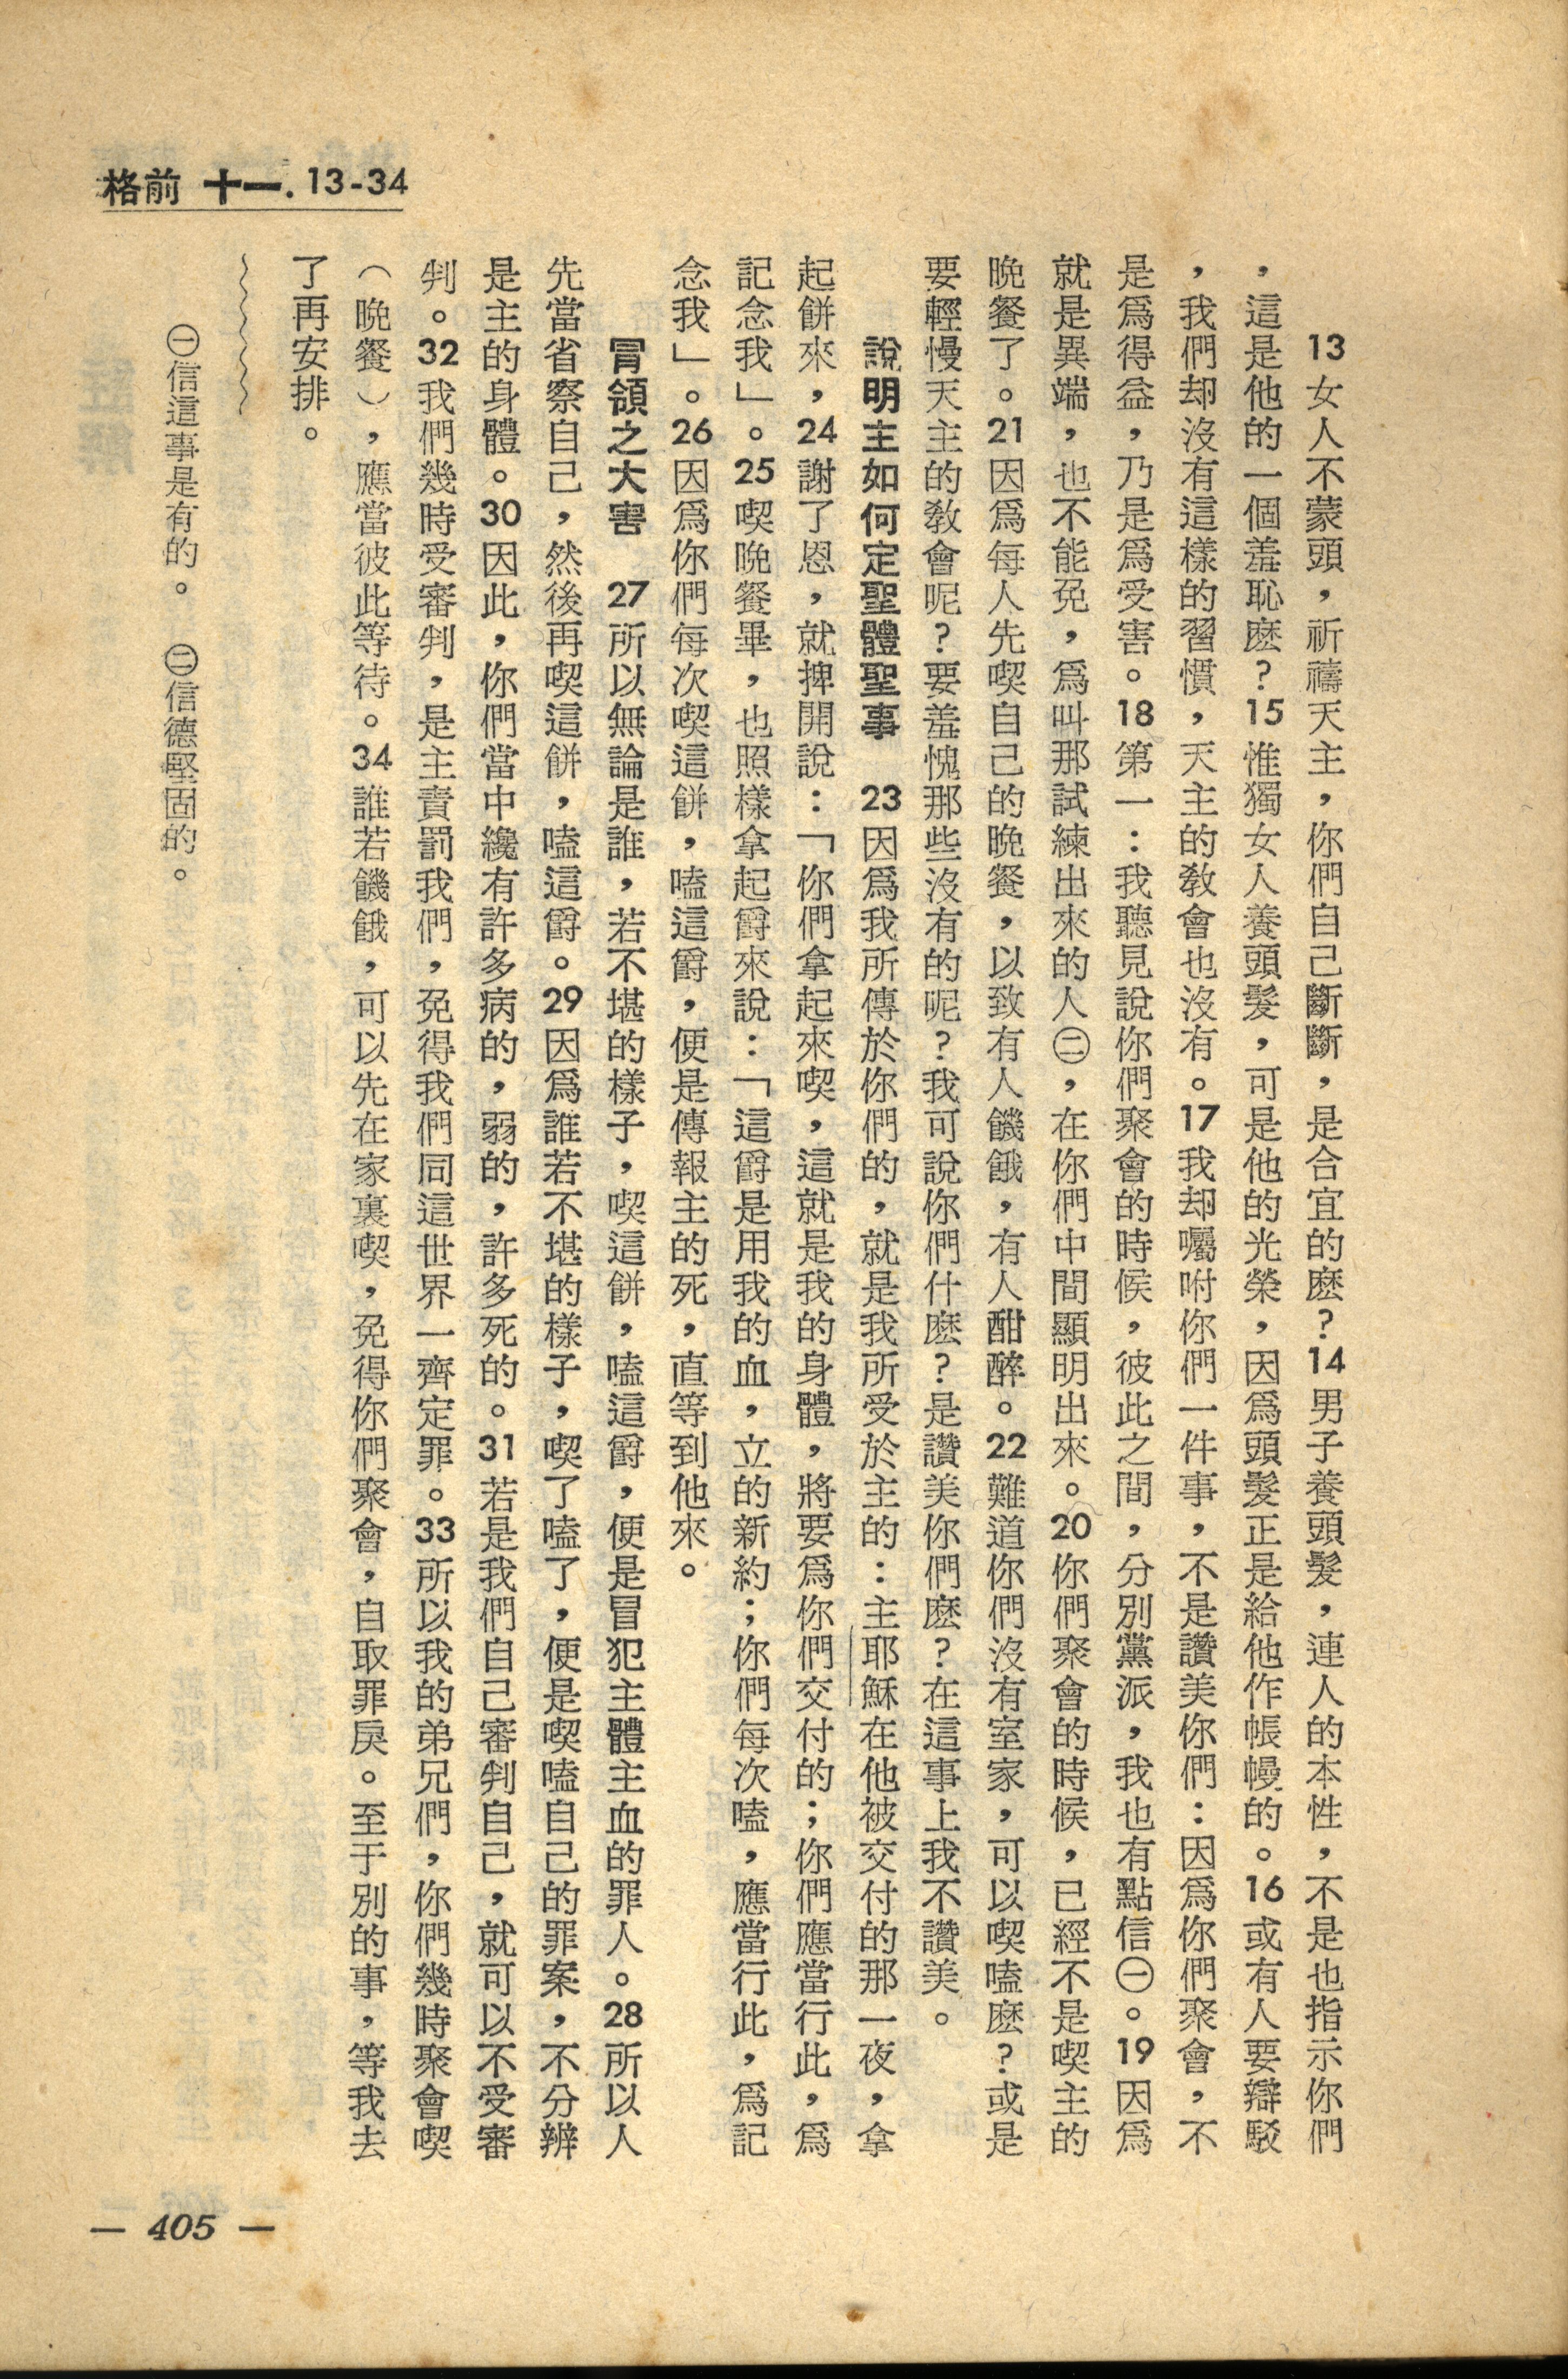 格前 十一. 13-34
13女人不蒙頭，祈禱天主，你們自己斷斷，是合宜的麽？14男子養頭髮，連人的本性，不是也指示你們
，這是他的一個羞恥麽？15惟獨女人養頭髮，可是他的光榮，因爲頭髮正是給他作帳幔的。16或有人要辯駁
，我們却沒有這樣的習慣，天主的教會也沒有。17我却囑咐你們一件事，不是讚美你們：因爲你們聚會，不
是爲得益，乃是爲受害。18第一：我聽見說你們聚會的時候，彼此之間，分別黨派，我也有點信㊀。19因爲
就是異端，也不能免，爲叫那試練出來的人㊁，在你們中間顯明出來。20你們聚會的時候，已經不是喫主的
晚餐了。21因爲每人先喫自己的晚餐，以致有人饑餓，有人酣醉。22難道你們沒有室家，可以喫嗑麽？或是
要輕慢天主的教會呢？要羞愧那些沒有的呢？我可說你們什麽？是讚美你們麽？在這事上我不讚美。
說明主如何定聖體聖事　23因爲我所傳於你們的，就是我所受於主的：主耶穌在他被交付的那一夜，拿
起餅來，24謝了恩，就捭開說：「你們拿起來喫，這就是我的身體，將要爲你們交付的；你們應當行此，爲
記念我」。25喫晚餐畢，也照樣拿起爵來說：「這爵是用我的血，立的新約；你們每次嗑，應當行此，爲記
念我」。26因爲你們每次喫這餅，嗑這爵，便是傳報主的死，直等到他來。
冐領之大害　27所以無論是誰，若不堪的樣子，喫這餅，嗑這爵，便是冒犯主體主血的罪人。28所以人
先當省察自己，然後再喫這餅，嗑這爵。29因爲誰若不堪的樣子，喫了嗑了，便是喫嗑自己的罪案，不分辨
是主的身體。30因此，你們當中纔有許多病的，弱的，許多死的。31若是我們自己審判自己，就可以不受審
判。32我們幾時受審判，是主責罰我們，免得我們同這世界一齊定罪。33所以我的弟兄們，你們幾時聚會喫
（晚餐），應當彼此等待。34誰若饑餓，可以先在家裏喫，免得你們聚會，自取罪戾。至于別的事，等我去
了再安排。
㊀信這事是有的。　㊁信德堅固的。
— 405 —